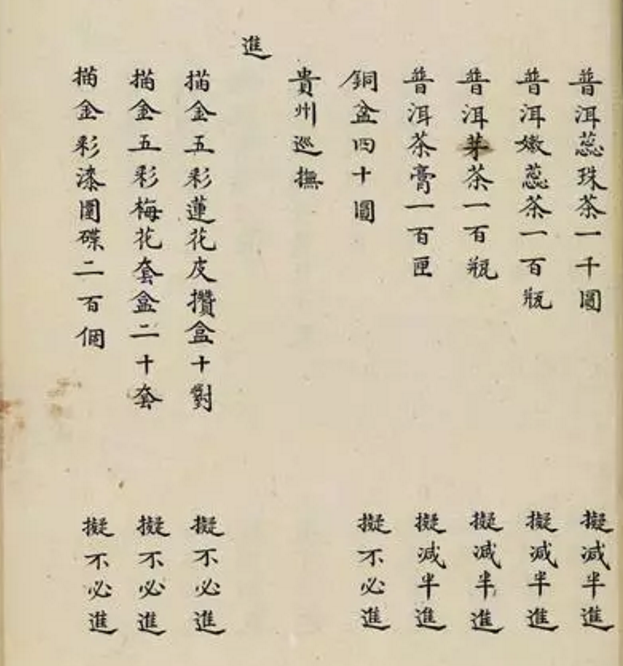 普洱蕊珠茶一千圓 擬減半進
普洱嫩蕊茶一百瓶 擬減半進
普洱芽茶一百瓶 擬減半進
普洱茶膏一百匣 擬減半進
銅盆四十圓 擬不必進
貴州巡撫
進
描金五彩蓮花皮攢盒十對 擬不必進
描金五彩梅花套盒二十套 擬不必進
描金彩漆圓碟二百個 擬不必進